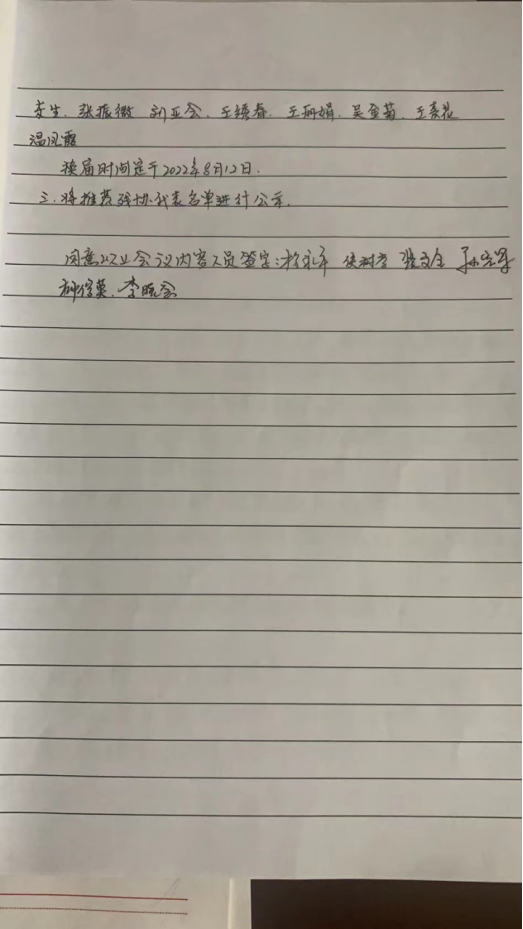 李生、张振微 刘亚会、王绣春、王丽娟、吴金菊、王春花
温凤霞
换届时间定于2022年8月12日.
三、将推荐残协代表名单进行公示.
同意以上会议内容人员签字:
李晓会